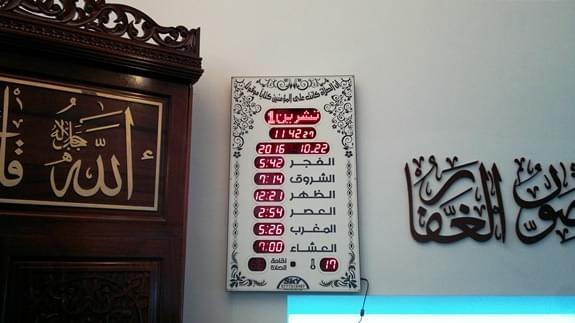 إن الصلاة كانت على المؤمنين كتابا موقوتا
تشرين 1
11 42 27
2016 10.22
5:42 الفجر
7:14 الشروق
12:21 الظهر
2:54 العصر
5:26 المغرب
7:00 العشاء
إقامة الصلاة 17
SKY
الله جل جلاله
الغفار